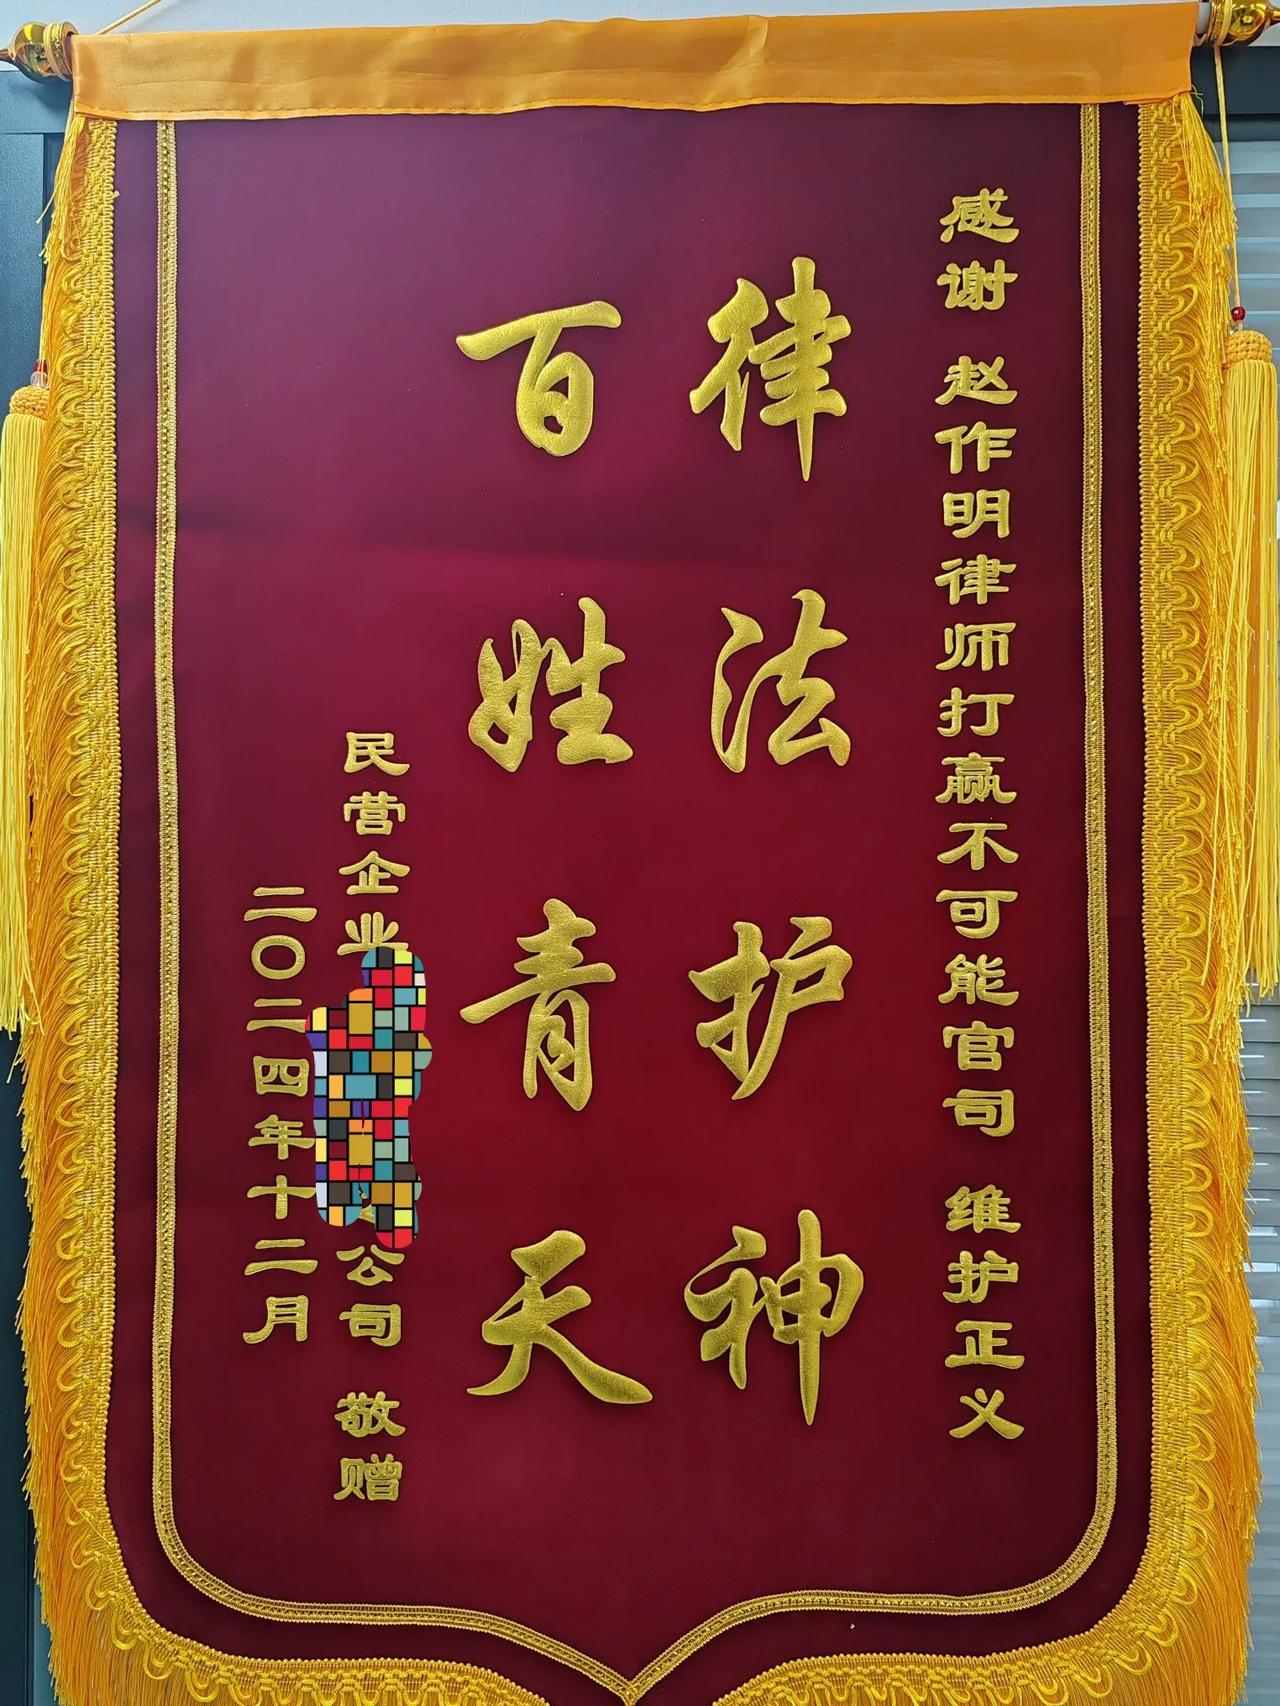 感谢 赵作明律师打赢不可能官司 维护正义
律法护神
百姓青天
民营企业 公司 敬赠
二〇二四年十二月